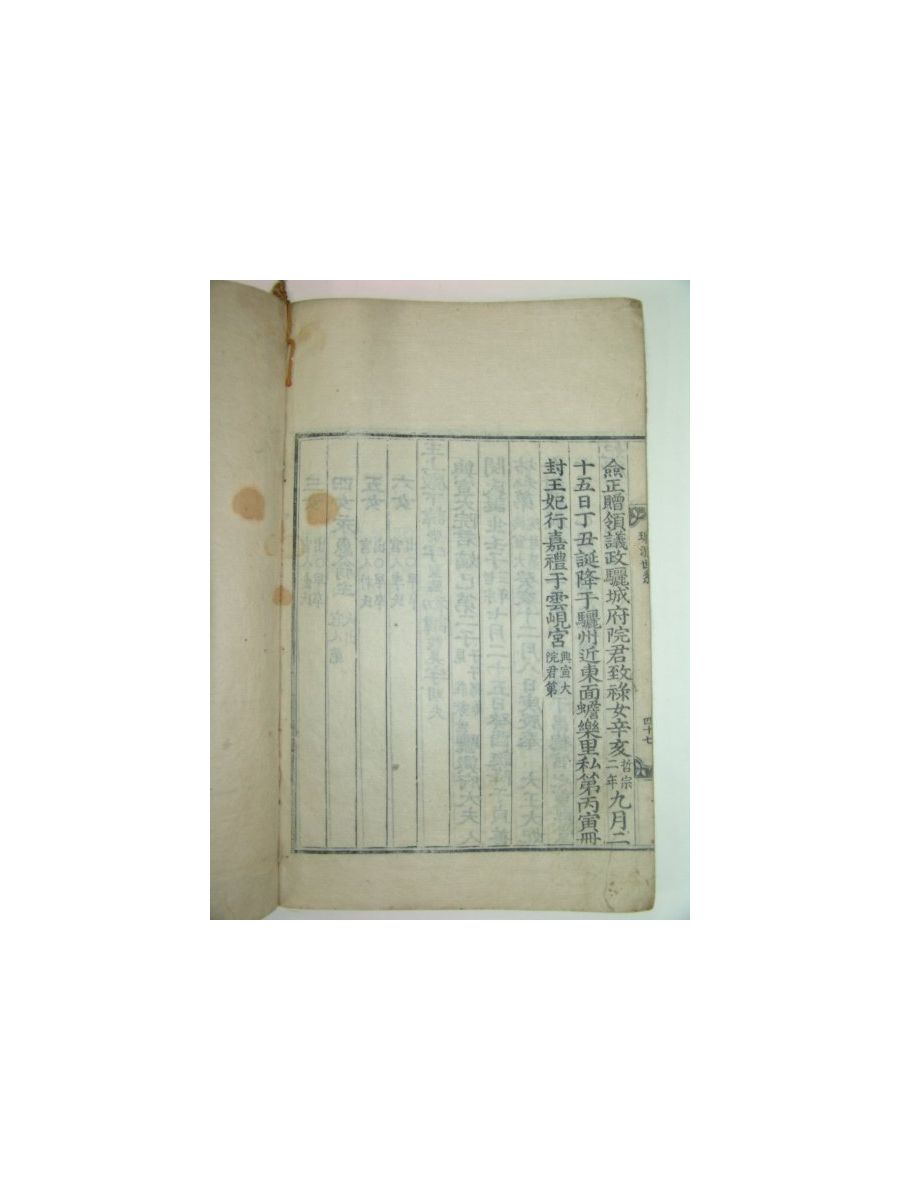 僉正贈領議政驪城府院君致祿女辛亥哲宗二年九月二
十五日丁丑誕降于驪州近東面蟾樂里私第丙寅冊
封王妃行嘉禮于雲峴宮興宣大院君第
四十七